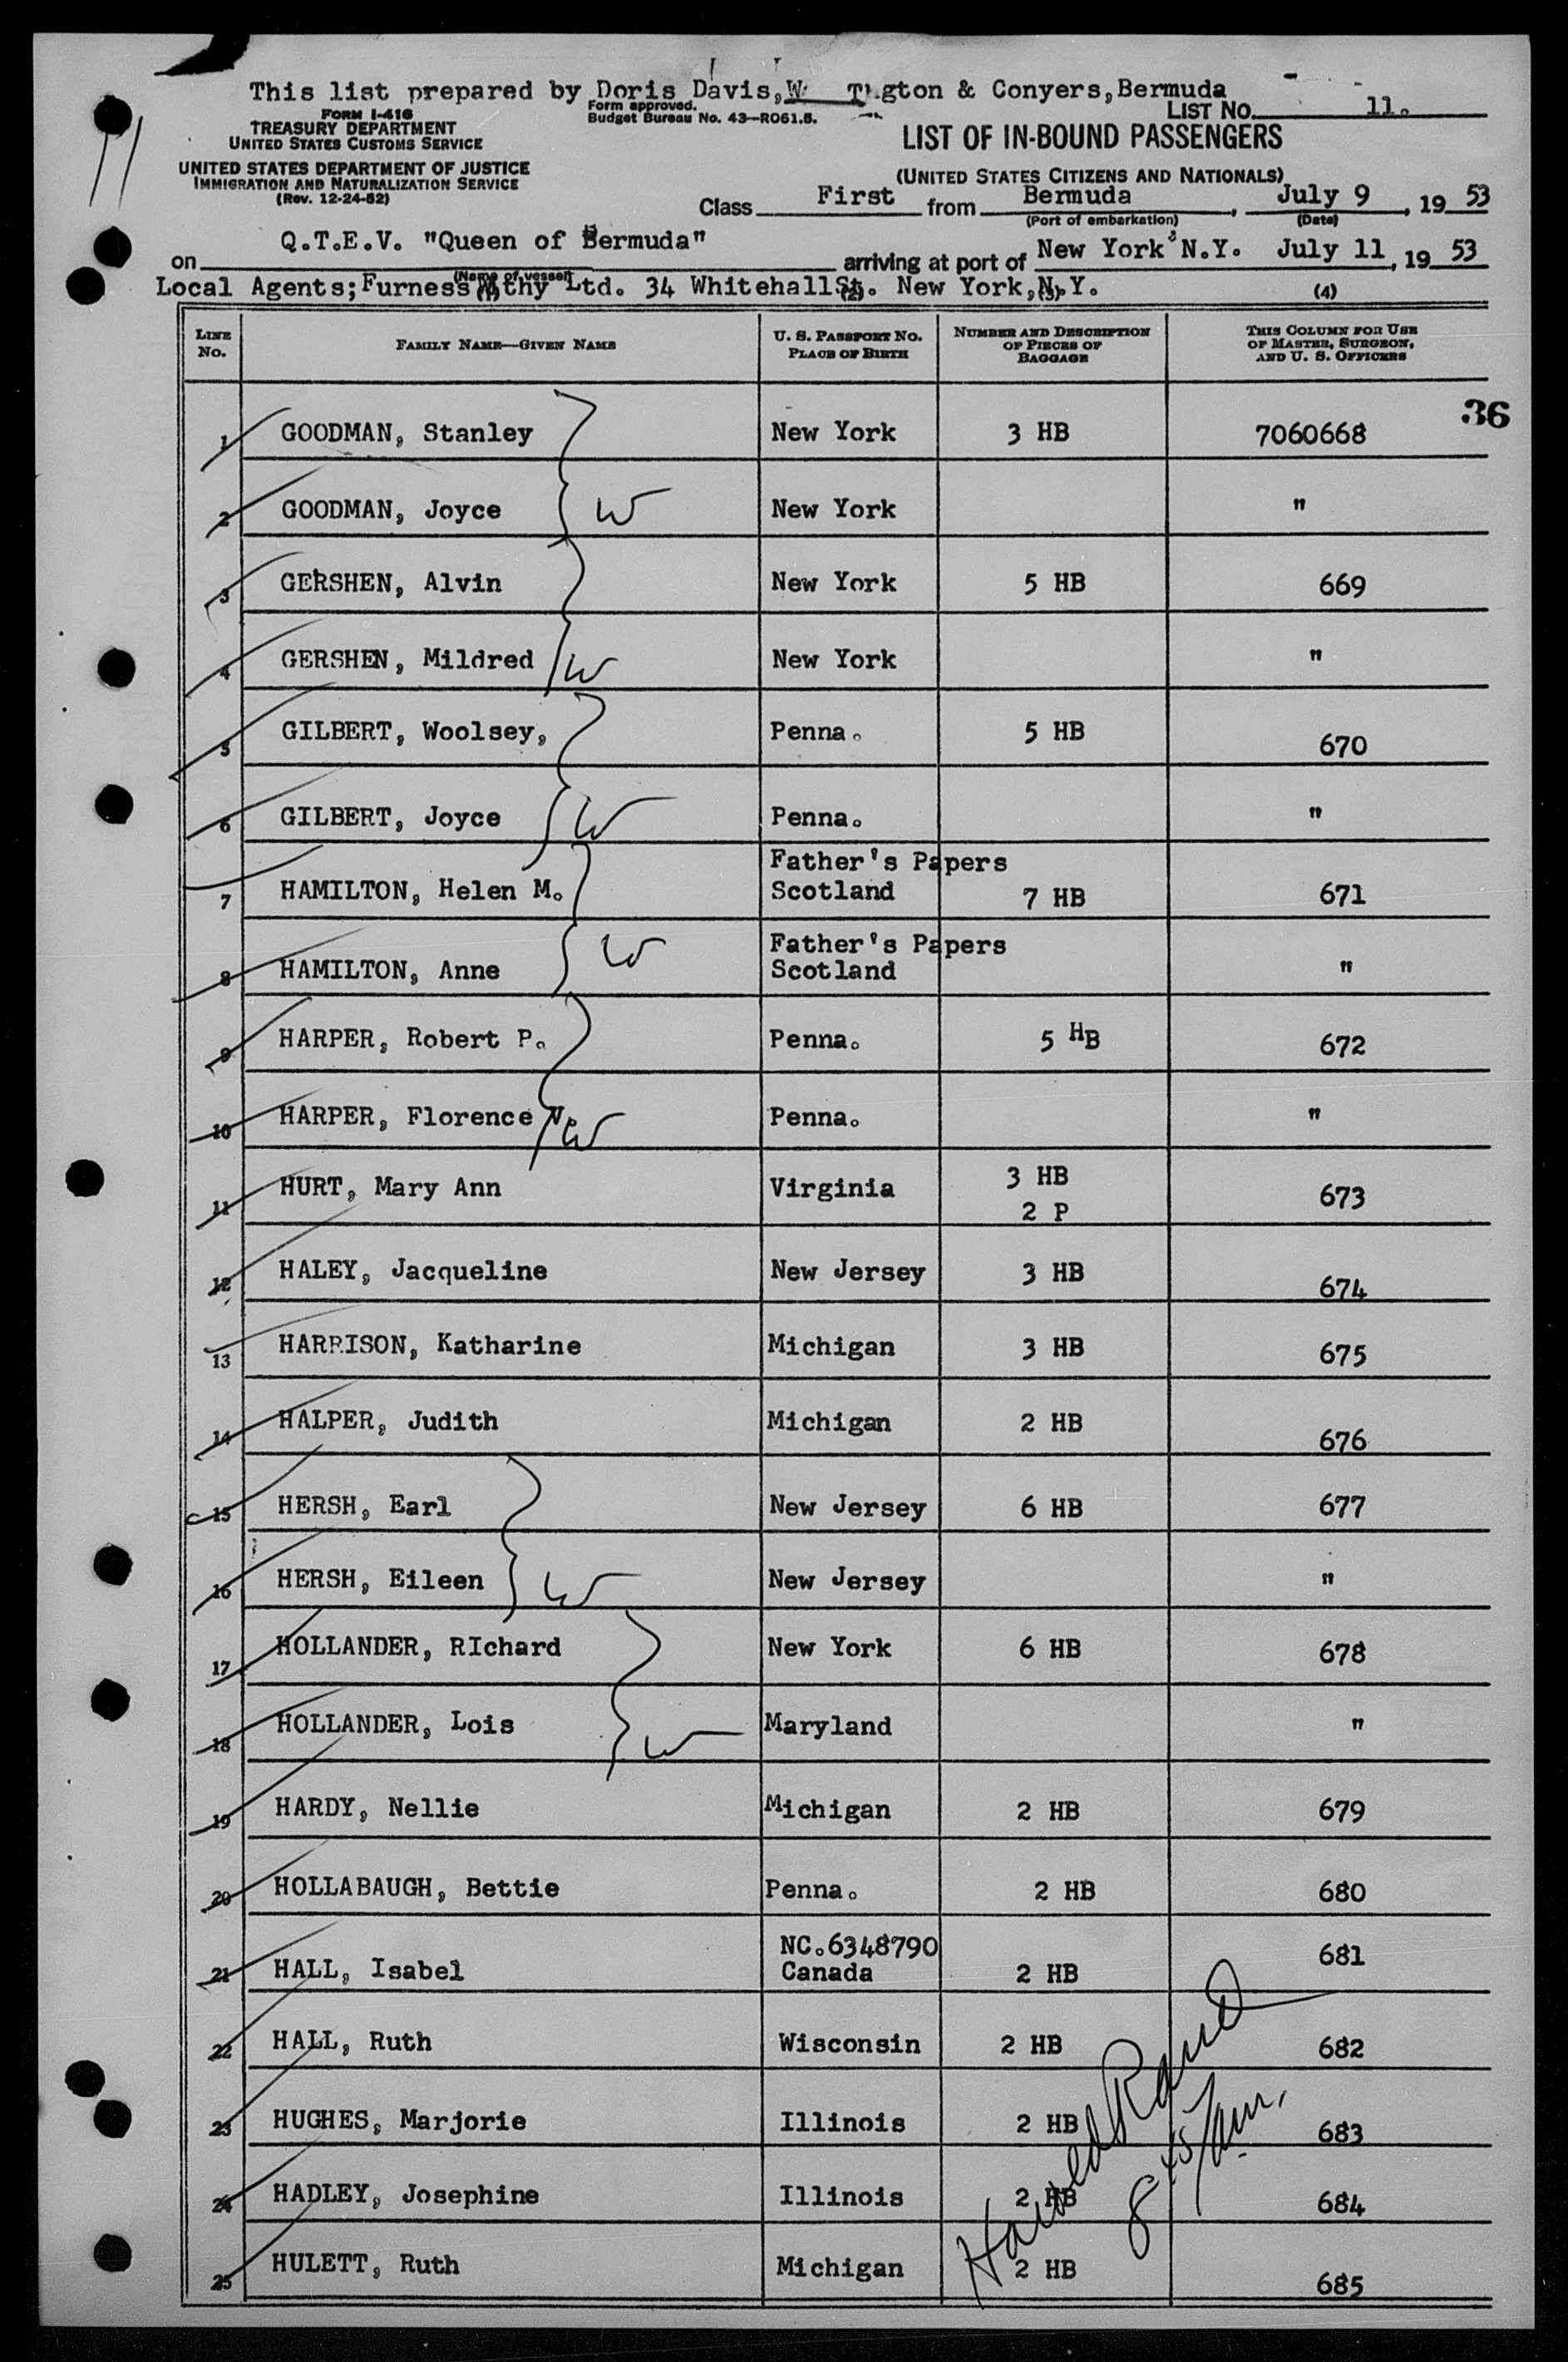 This list prepared by Doris Davis, & Conyers,Bermuda
FORM I-416
TREASURY DEPARTMENT
UNITED STATES CUSTOMS SERVICE
Form approved.
Budget Bureau No. 43—R061.5.
LIST No. 11.
LIST OF IN-BOUND PASSENGERS
UNITED STATES DEPARTMENT OF JUSTICE
IMMIGRATION AND NATURALIZATION SERVICE
(Rev. 12-24-52)
(UNITED STATES CITIZENS AND NATIONALS)
Class First from Bermuda, July 9, 19 53
(Port of embarkation) (Date)
on Q.T.E.V. "Queen of Bermuda" arriving at port of New York N.Y. July 11, 19 53
(Name of vessel)
Local Agents;Furness Wthy Ltd. 34 Whitehall St. New York,N.Y.
(1) (2) (3) (4)
LINE No. FAMILY NAME—GIVEN NAME U. S. PASSPORT No. PLACE OF BIRTH NUMBER AND DESCRIPTION OF PIECES OF BAGGAGE THIS COLUMN FOR USE OF MASTER, SURGEON, AND U. S. OFFICERS
36
1 GOODMAN, Stanley New York 3 HB 7060668
2 GOODMAN, Joyce W New York "
3 GERSHEN, Alvin New York 5 HB 669
4 GERSHEN, Mildred W New York "
5 GILBERT, Woolsey, Penna. 5 HB 670
6 GILBERT, Joyce W Penna. "
Father's Papers
7 HAMILTON, Helen M. Scotland 7 HB 671
Father's Papers
8 HAMILTON, Anne W Scotland "
9 HARPER, Robert P. Penna. 5 HB 672
10 HARPER, Florence W Penna. "
11 HURT, Mary Ann Virginia 3 HB 673
2 P
12 HALEY, Jacqueline New Jersey 3 HB 674
13 HARRISON, Katharine Michigan 3 HB 675
14 HALPER, Judith Michigan 2 HB 676
15 HERSH, Earl New Jersey 6 HB 677
16 HERSH, Eileen W New Jersey "
17 HOLLANDER, RIchard New York 6 HB 678
18 HOLLANDER, Lois W Maryland "
19 HARDY, Nellie Michigan 2 HB 679
20 HOLLABAUGH, Bettie Penna. 2 HB 680
NC.6348790
21 HALL, Isabel Canada 2 HB 681
22 HALL, Ruth Wisconsin 2 HB 682
23 HUGHES, Marjorie Illinois 2 HB 683
24 HADLEY, Josephine Illinois 2 HB 684
25 HULETT, Ruth Michigan 2 HB 685